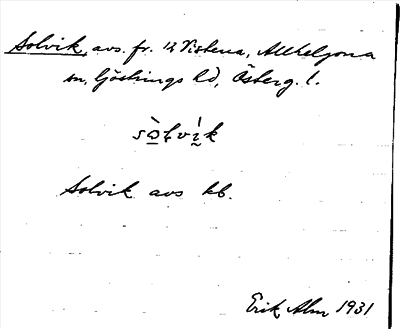 Solvik, avs. fr. 1/2 Vistena, Allhelgona
sn, Göstrings hd, Österg. l.
sɔ̀lvìk
Solvik avs kb.
Erik Alm 1931